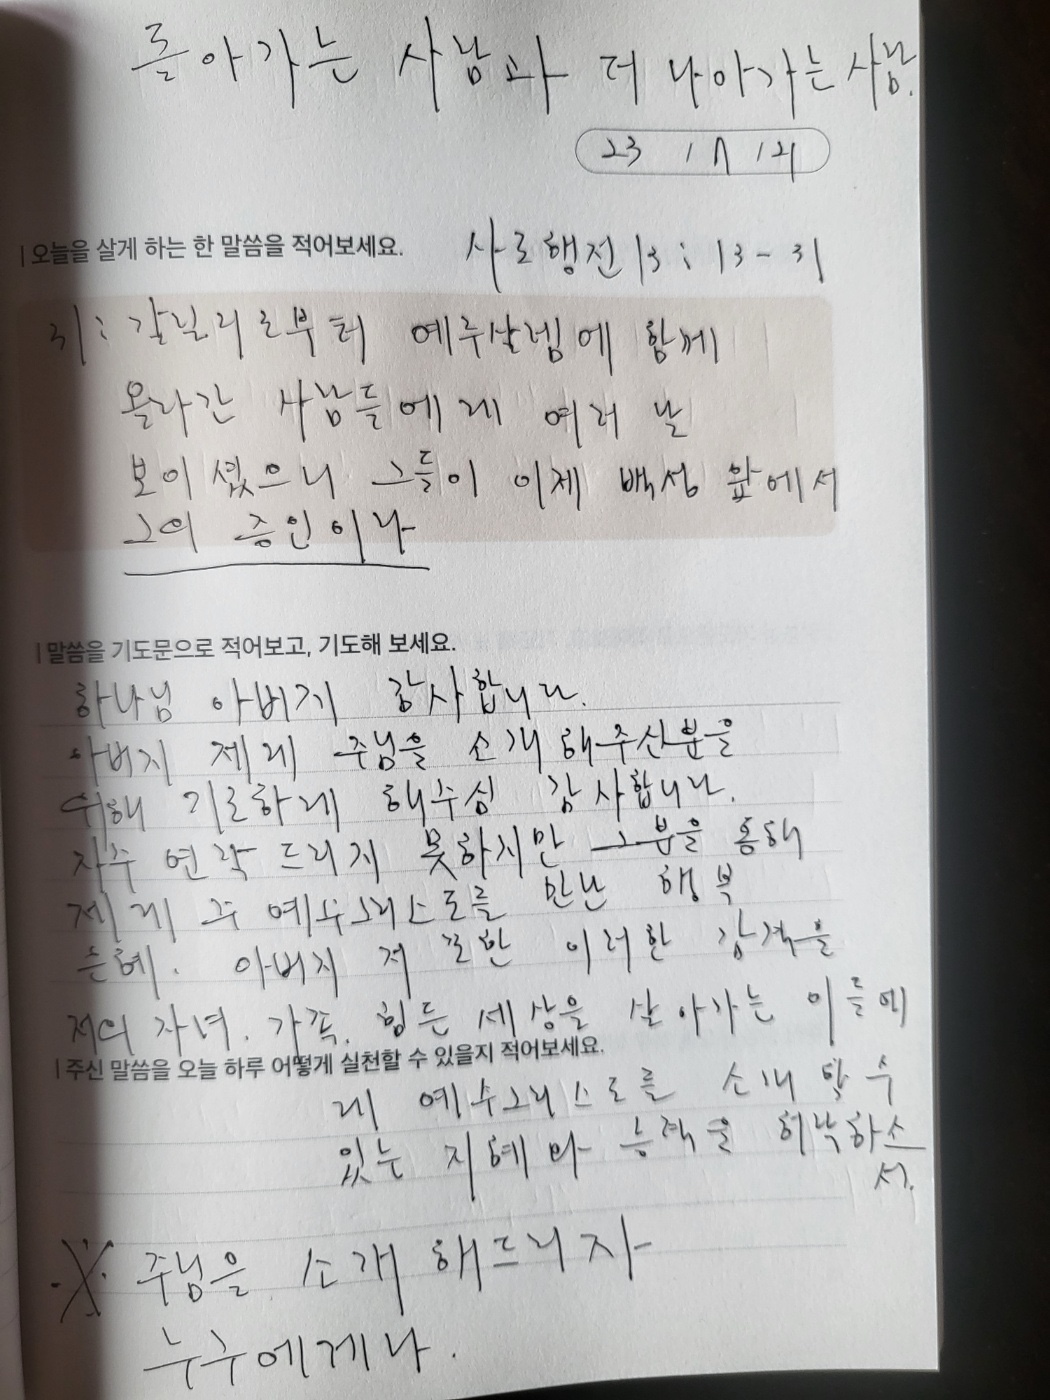 돌아가는 사람과 더 나아가는 사람.
23 / 7 / 21
오늘을 살게 하는 한 말씀을 적어보세요.
사도행전 13 : 13 - 31
31 : 갈릴리로부터 예루살렘에 함께
올라간 사람들에게 여러 날
보이셨으니 그들이 이제 백성 앞에서
그의 증인이라
말씀을 기도문으로 적어보고, 기도해 보세요.
하나님 아버지 감사합니다.
아버지 제게 주님을 소개 해주신분을
위해 기도하게 해주심 감사합니다.
자주 연락 드리지 못하지만 그분을 통해
제게 주 예수그리스도를 만난 행복
은혜. 아버지 저 또한 이러한 감격을
저의 자녀. 가족. 힘든 세상을 살아가는 이들에
주신 말씀을 오늘 하루 어떻게 실천할 수 있을지 적어보세요.
게 예수그리스도를 소개 할 수
있는 지혜와 능력을 허락하소
서.
※ 주님을 소개 해드리자
누구에게나.